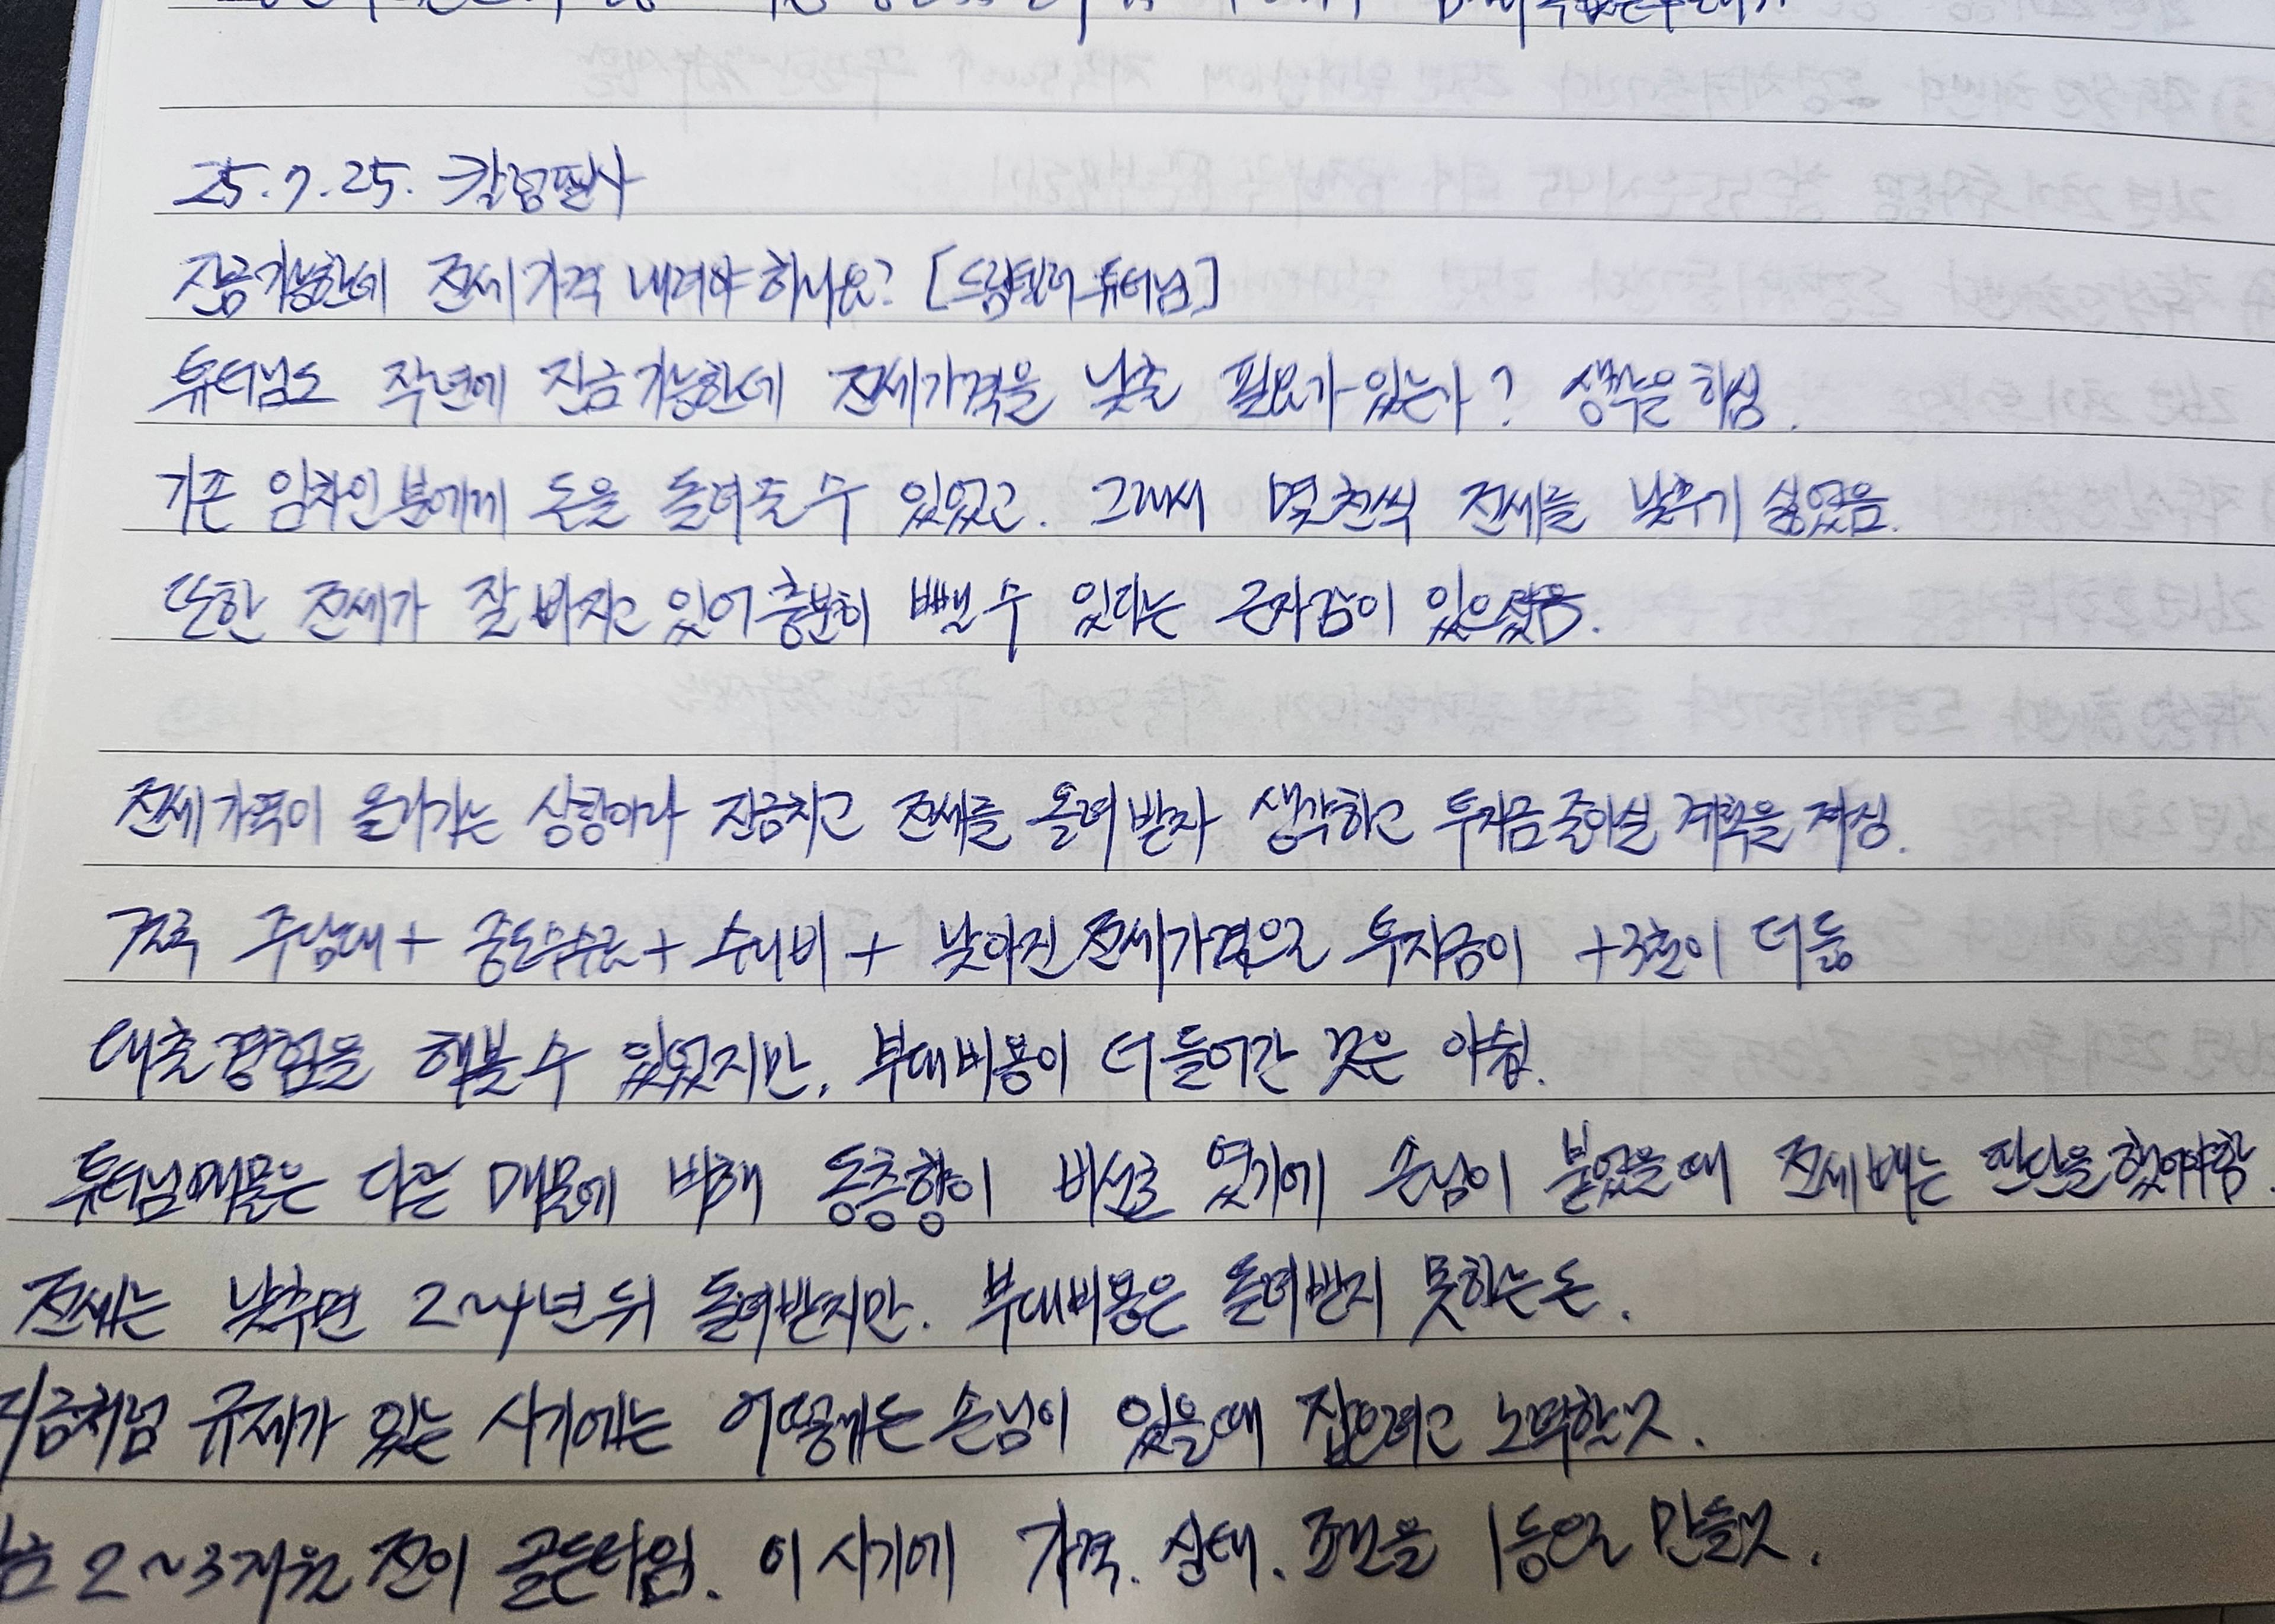 25.7.25. 칼럼필사
잔금가능한데 전세가격 내려야 하나요? [드림텔러 튜터님]
튜터님도 작년에 잔금가능한데 전세가격을 낮출 필요가 있는가? 생각을 하심.
기존 임차인분에게 돈을 돌려줄 수 있었고. 그래서 몇천씩 전세를 낮추기 싫었음.
또한 전세가 잘 빠지고 있어 충분히 뺄 수 있다는 근자감이 있으셨음.
전세가격이 올라가는 상황이라 잔금치고 전세를 올려 받자 생각하고 투자금 줄이실 계획을 저성.
결국 주담대 + 중도수수료 + 수리비 + 낮아진 전세가격으로 투자금이 +3천이 더듦
대출경험을 해볼 수 있었지만, 부대비용이 더 들어간 것은 아쉽.
튜터님매물은 다른 매물에 비해 동층향이 비선호 였기에 손님이 붙었을때 전세 빼는 판단을 했어야함.
전세는 낮추면 2~4년 뒤 돌려받지만. 부대비용은 돌려받지 못하는 돈.
지금처럼 규제가 있는 시기에는 어떻게든 손님이 있을때 잡으려고 노력할것.
2~3개월 전이 골든타임. 이 시기에 가격. 상태. 조건을 1등으로 만들것.